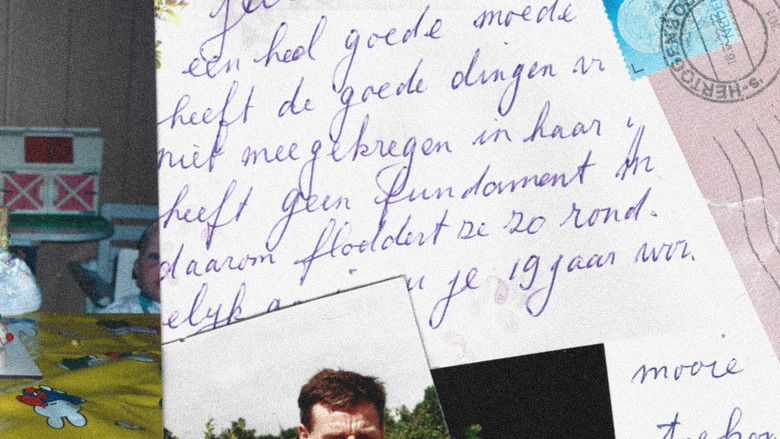 een heel goede moede
heeft de goede dingen
niet meegekregen in haar
heeft geen fundament
daarom floddert ze zo rond.
elyk je 19 jaar wor
's-HERTOGENBO
mooie